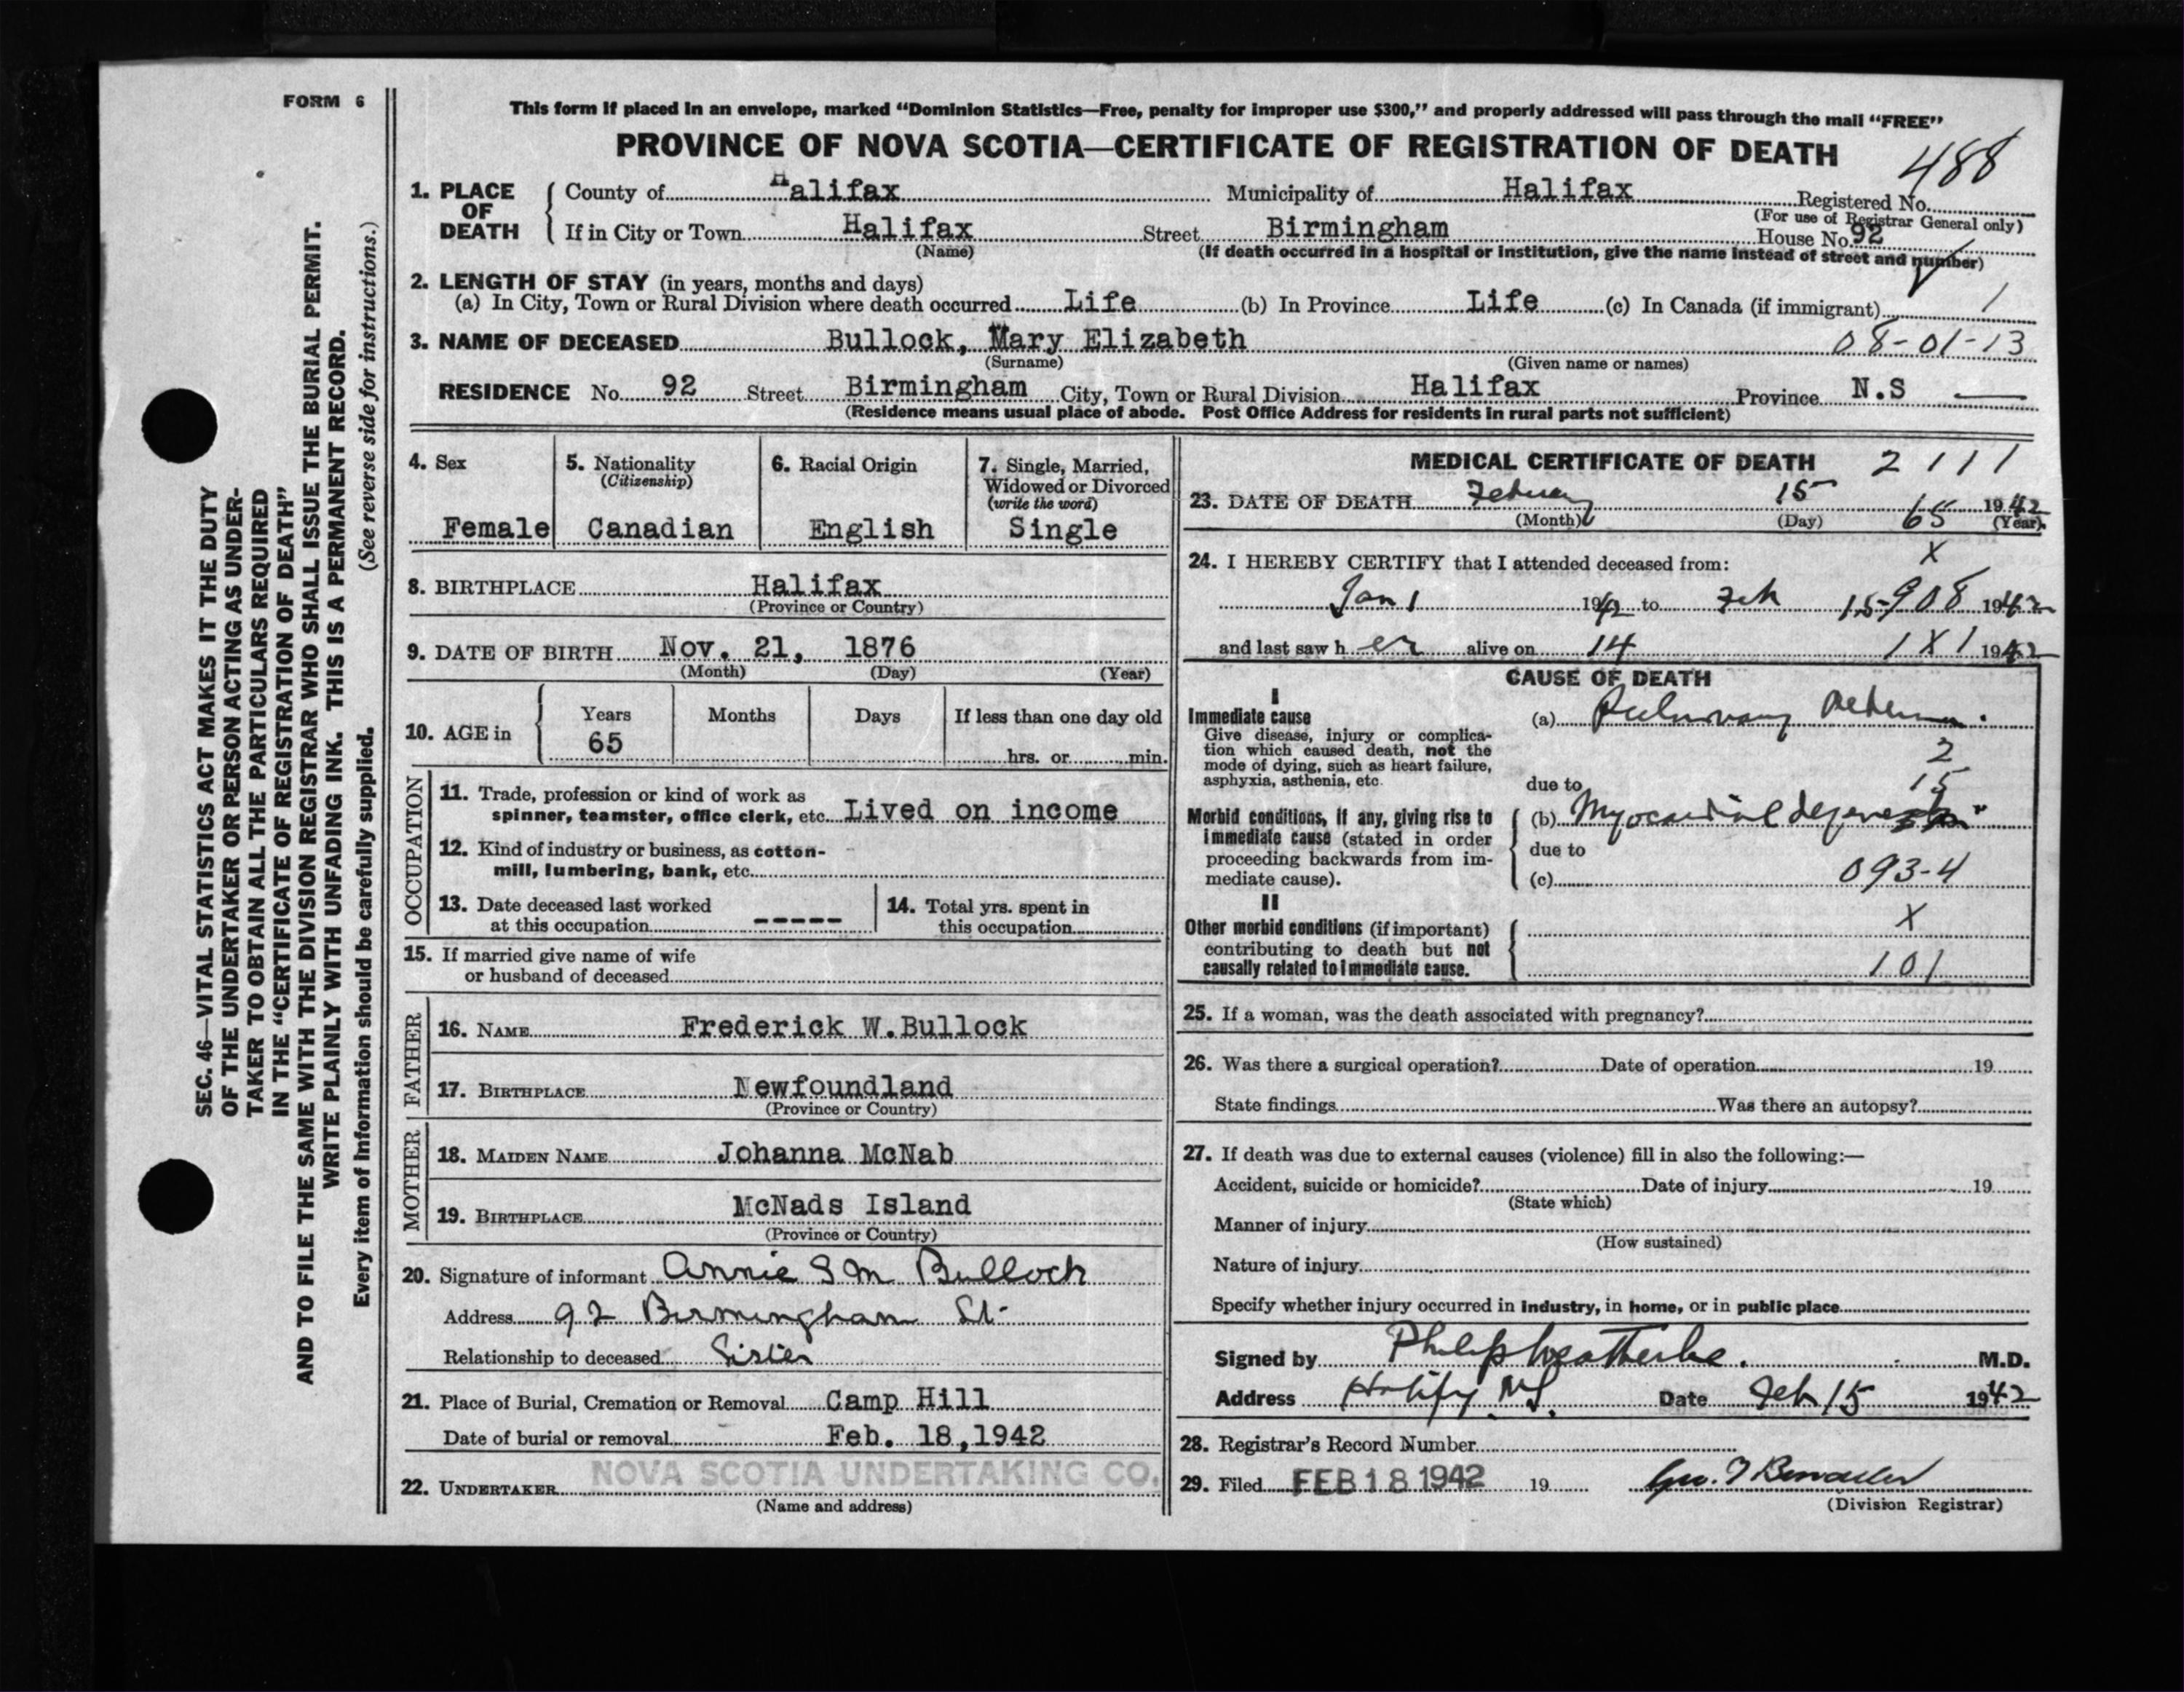 FORM 6
This form if placed in an envelope, marked “Dominion Statistics—Free, penalty for improper use $300,” and properly addressed will pass through the mail “FREE”
PROVINCE OF NOVA SCOTIA—CERTIFICATE OF REGISTRATION OF DEATH
488
1. PLACE OF DEATH
County of Halifax Municipality of Halifax Registered No.
(For use of Registrar General only)
If in City or Town Halifax Street Birmingham House No. 92
(Name) (If death occurred in a hospital or institution, give the name instead of street and number)
2. LENGTH OF STAY (in years, months and days)
(a) In City, Town or Rural Division where death occurred Life (b) In Province Life (c) In Canada (if immigrant) 1
3. NAME OF DECEASED Bullock, Mary Elizabeth 08-01-13
(Surname) (Given name or names)
RESIDENCE No. 92 Street Birmingham City, Town or Rural Division Halifax Province N.S —
(Residence means usual place of abode. Post Office Address for residents in rural parts not sufficient)
4. Sex
Female
5. Nationality
(Citizenship)
Canadian
6. Racial Origin
English
7. Single, Married,
Widowed or Divorced
(write the word)
Single
8. BIRTHPLACE Halifax
(Province or Country)
9. DATE OF BIRTH Nov. 21, 1876
(Month) (Day) (Year)
10. AGE in
Years Months Days If less than one day old
65
hrs. or min.
OCCUPATION
11. Trade, profession or kind of work as
spinner, teamster, office clerk, etc. Lived on income
12. Kind of industry or business, as cotton-
mill, lumbering, bank, etc.
13. Date deceased last worked
at this occupation -----
14. Total yrs. spent in
this occupation
15. If married give name of wife
or husband of deceased
FATHER
16. NAME Frederick W.Bullock
17. BIRTHPLACE Newfoundland
(Province or Country)
MOTHER
18. MAIDEN NAME Johanna McNab
19. BIRTHPLACE McNads Island
(Province or Country)
20. Signature of informant Annie S M Bullock
Address 92 Birmingham St.
Relationship to deceased Sister
21. Place of Burial, Cremation or Removal Camp Hill
Date of burial or removal Feb. 18,1942
22. UNDERTAKER NOVA SCOTIA UNDERTAKING CO.
(Name and address)
MEDICAL CERTIFICATE OF DEATH 2 111
23. DATE OF DEATH February 15 65 1942
(Month) (Day) (Year)
24. I HEREBY CERTIFY that I attended deceased from: X
Jan 1 1942 to Feb 15 908 1942
and last saw her alive on 14 1X1 1942
CAUSE OF DEATH
I
Immediate cause
Give disease, injury or complica-
tion which caused death, not the
mode of dying, such as heart failure,
asphyxia, asthenia, etc.
(a) Pulmonary Oedema.
2
due to 15
Morbid conditions, if any, giving rise to
immediate cause (stated in order
proceeding backwards from im-
mediate cause).
(b) Myocardial degeneration
due to
(c) 093-4
II X
Other morbid conditions (if important)
contributing to death but not
causally related to immediate cause.
101
25. If a woman, was the death associated with pregnancy?
26. Was there a surgical operation? Date of operation 19
State findings Was there an autopsy?
27. If death was due to external causes (violence) fill in also the following:—
Accident, suicide or homicide? Date of injury 19
(State which)
Manner of injury
(How sustained)
Nature of injury
Specify whether injury occurred in industry, in home, or in public place
Signed by Philip Weatherbe. M.D.
Address Halifax N.S. Date Feb 15 1942
28. Registrar's Record Number
29. Filed FEB 18 1942 19
(Division Registrar)
SEC. 46—VITAL STATISTICS ACT MAKES IT THE DUTY
OF THE UNDERTAKER OR PERSON ACTING AS UNDER-
TAKER TO OBTAIN ALL THE PARTICULARS REQUIRED
IN THE “CERTIFICATE OF REGISTRATION OF DEATH”
AND TO FILE THE SAME WITH THE DIVISION REGISTRAR WHO SHALL ISSUE THE BURIAL PERMIT.
WRITE PLAINLY WITH UNFADING INK. THIS IS A PERMANENT RECORD.
Every item of information should be carefully supplied. (See reverse side for instructions.)